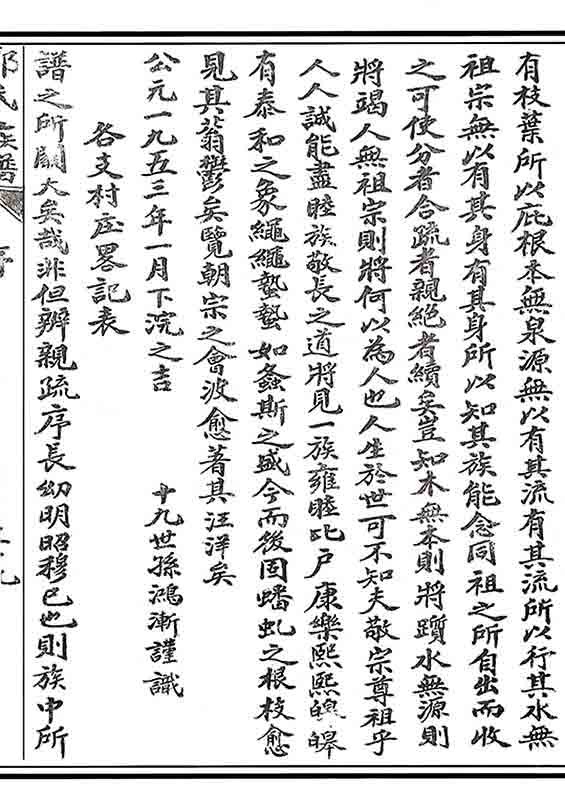 有枝葉所以庇根本無泉源無以有其流有其流所以行其水無
祖宗無以有其身有其身所以知其族能念同祖之所自出而收
之可使分者合疏者親絕者續矣豈知木無本則將躓水無源則
將竭人無祖宗則將何以為人也人生於世可不知夫敬宗尊祖乎
人人誠能盡睦族敬長之道將見一族雍睦比户康樂熙熙皞皞
有泰和之象繩繩蟄蟄如螽斯之盛今而後固蟠虬之根枝愈
見其蓊鬱矣覽朝宗之會波愈著其汪洋矣
公元一九五三年一月下浣之吉
十九世孫鴻漸謹識
各支村庄畧記表
譜之所關大矣哉非但辨親疏序長幼明昭穆已也則族中所
氏族譜
序